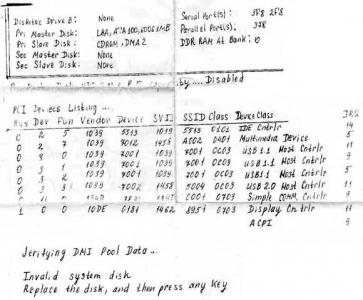 Diskette Drive B: None Serial Port(s): 3F8 2F8
Pri Master Disk: LBA, ATA 100, Parallel Port(s): 378
Pri Slave Disk: CDROM, DMA 2 DDR RAM At Bank: 0
Sec Master Disk: None
Sec Slave Disk: None
Disabled
PCI Devices Listing ...
Bus Dev Fun Vendor Device SVID SSID Class Device Class IRQ
0 2 5 1039 5513 1039 5513 0101 IDE Cntrlr 14
0 2 7 1039 7012 1458 A002 0401 Multimedia Device 5
0 3 0 1039 7001 1039 7001 0C03 USB 1.1 Host Cntrlr 9
0 3 1 1039 7001 1039 7001 0C03 USB 1.1 Host Cntrlr
0 3 2 1039 7001 1039 7001 0C03 USB 1.1 Host Cntrlr
0 3 3 1039 7002 1458 5004 0C03 USB 2.0 Host Cntrlr 11
0703 Simple COMM. Cntrlr
1 0 0 10DE 0181 1462 8951 0703 Display Cntrlr 11
ACPI 9
Verifying DMI Pool Data ...
Invalid system disk
Replace the disk, and then press any key